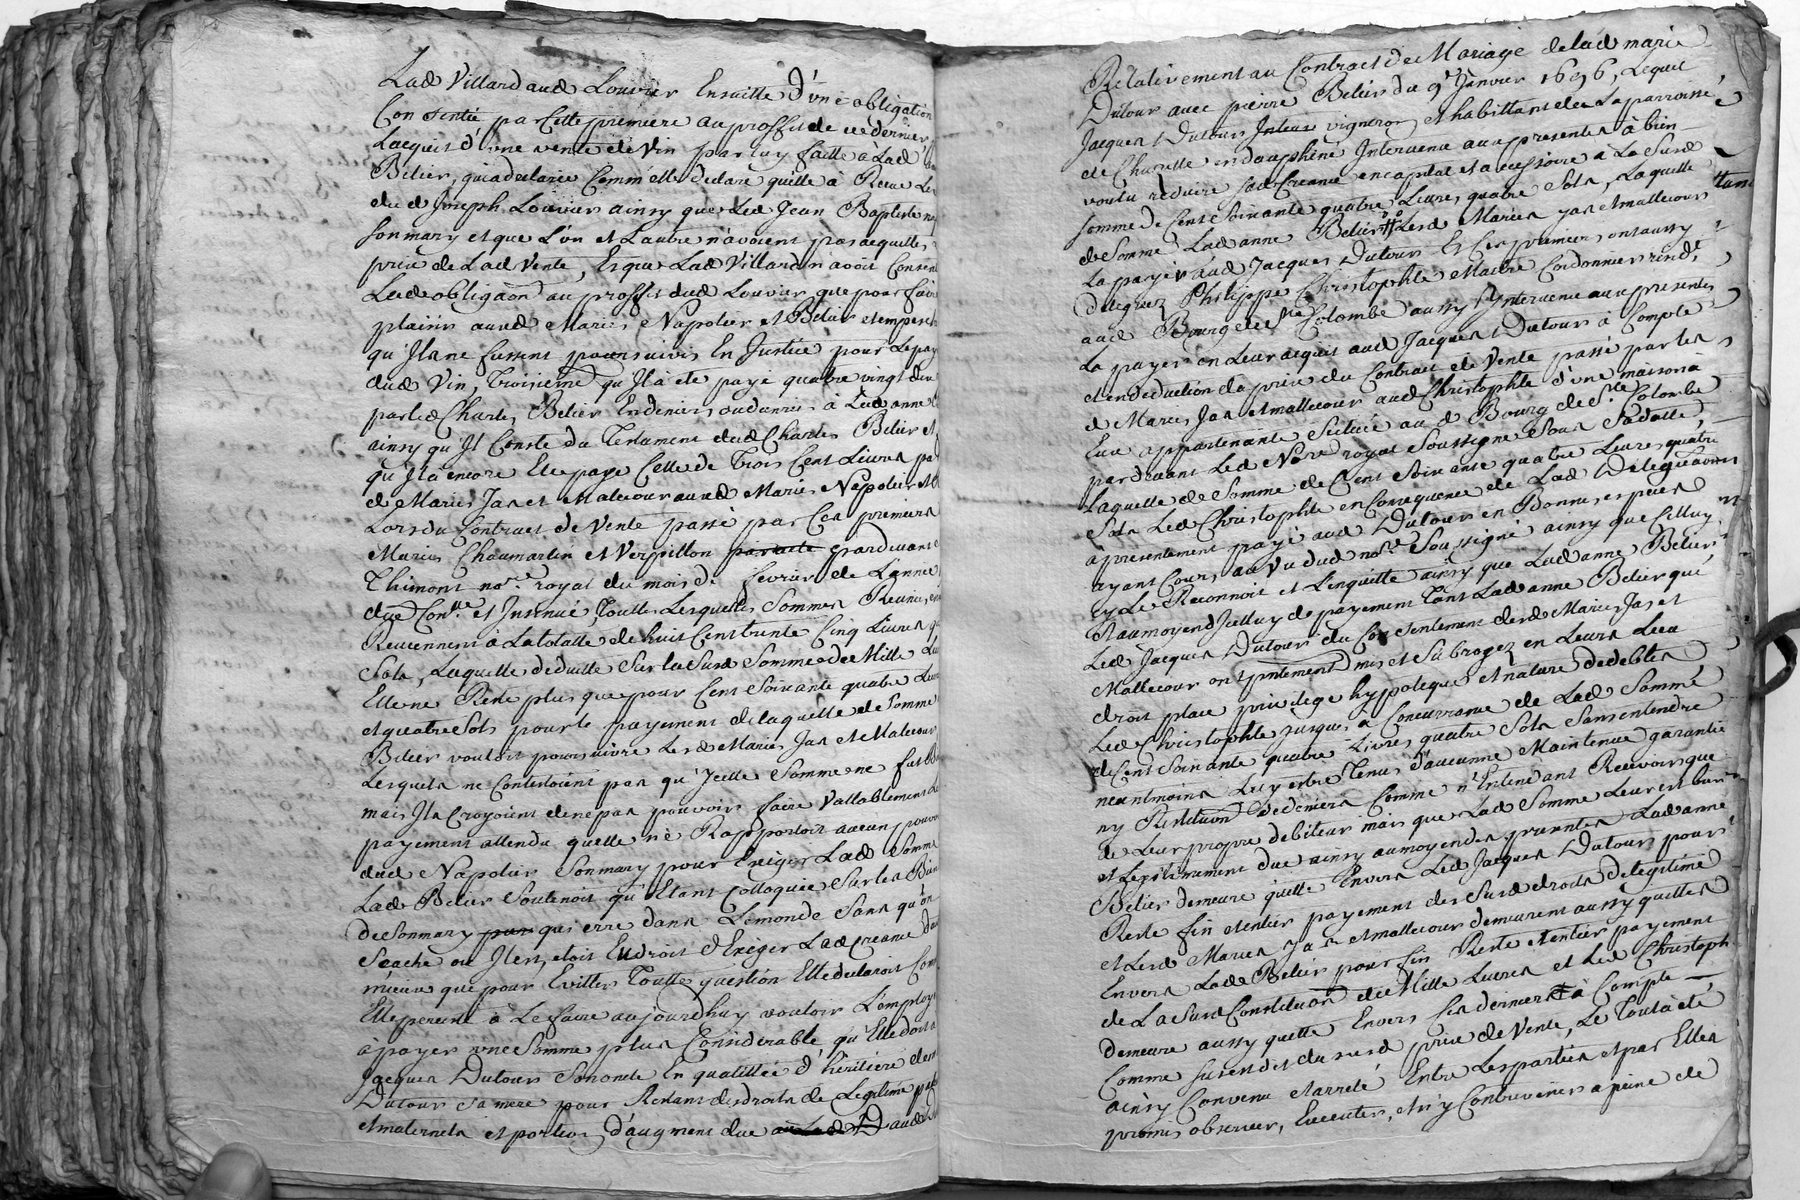 Lad Villard aud Louvier Ensuitte d'une obligation
Consentie par Cette premiere au proffit de ce dernier
Lacquit d'une vente de vin par luy faitte à Lad
Belier, qui a declarée Comm elle declare quelle à Receu
dud Joseph Louvier ainsy que Led Jean Baptiste
son mary et que L'un et Lautre n'avoient pas acquittés
prix de Lad Vente, Et que Lad Villard n'avoit Consenti
Lad obligaon au proffit dud Louvier que pour faire
plaisir auxd Maries Napolier et Belier et empescher
qu'Ils ne fussent poursuivis En Justice pour Le pay
dud Vin, Troisieme qu'Il à eté payé quatre vingt dix
par led Charles Belier En deniers ou danrées à Lad anne
ainsy qu'Il Conste du Testament dud Charles Belier et
qu'Il à encore Eté payé Celle de Trois Cent Livres par
d Maries Jas et Malecour auxd Maries Napolier et
Lors du Contract de Vente passé par Ces premiers
Maries Chaumartin et Verpillon par acte pardevant
Thimont nore royal du mois de fevrier de L'année
due Conlle et Insinué, Toutes Lesquelles Sommes Reunies
Reviennent à La totalle de huit Cent trente Cinq Livres
Sols, Laquelle deduitte Sur la Susd Somme de Mille
Elle ne Reste plus que pour Cent Soixante quatre Livres
et quatre Sols pour le payement de laquelle de Somme
Belier vouloit poursuivre Lesd Maries Jas et Malecour
Lesquels ne Contestoient pas qu'Icelle Somme ne fut
mais Ils Croyoient de ne pas pouvoir faire Vallablement
payement attendu quelle ne Rapportoit aucun pouvoir
dud Napolier Son mary pour Exiger Lad Somme
Lad Belier Soutenoit qu'Etant Colloquée Sur les Biens
de Son mary pas qui erre dans Le monde Sans qu'on
Scache ou Il est, étoit En droit d'Exiger Lad Creance
mieux que pour Eviter Toutte question Elle declaroit
Elle persiste à Le faire aujourdhuy vouloir L'employer
à payer une Somme plus Considerable qu'Elle doit à
Jacques Dutour Son oncle En qualittée d'héritiere de
Dutour Sa mere pour Restant des droits de Legitime
et maternels et portion d'augment due aud
Relativement au Contract de Mariage de lad marie
Dutour avec pierre Belier du 9e Janvier 1696, Lequel
Jacques Dutour vigneron et habittant de La parroisse
de Chuzelle en dauphiné Intervenu aux presentes à bien
voulu reduire Sad Creance en capital et accessoire à La Susd
somme de Cent Soixante quatre Livres quatre Sols, Laquelle
de Somme Lad anne Belier Lesd Maries Jas et mallecour
La payer aud Jacques Dutour Et Ces premiers ont aussy
delegués Philippe Christophle Maitre Cordonnier resid.
aud Bourg de Ste Colombe aussy Intervenu aux presentes
La payer en Leur acquit aud Jacques Dutour à Compte
et en deduction du prix du Contract de Vente passé par les
d Maries Jas et mallecour aud Christophle d'une maison à
Eux appartenante Scituée au d Bourg de Ste Colombe
pardevant Led Nore royal Soussigné Sous Sa datte,
Laquelle de Somme de Cent Soixante quatre Livres quatre
Sols Led Christophle en Consequence de Lad Delegation
à presentement payé aud Dutour en Bonnes especes
ayant Cours, au Vu dud nore Soussigné ainsy que Celluy
cy Le Reconnoit et L'enquitte ainsy que Lad anne Belier
Et au moyen d'Icelluy de payement Tant Lad anne Belier que
Led Jacques Dutour du Consentement desd Maries Jas et
Mallecour ont presentement mis et Subrogez en Leurs Lieu
droit place privilege hypoteque et nature de debtes
Led Christophle jusques à Concurrance de Lad Somme
de Cent Soixante quatre Livres quatre Sols Sans entendre
neantmoins Luy estre Tenus d'aucunne Maintenue garantie
ny Restituon de deniers Comme n'Entendant Recevoir que
de Leur propre debiteur mais que Lad Somme Leur est bien
et Legitimement due ainsy au moyen des presentes Lad anne
Belier demeure quitte Envers Led Jacques Dutour pour
Reste fin et entier payement des Susd droits de legitime
et Lesd Maries Jas et mallecour demeurent aussy quittes
Envers Lad Belier pour fin Reste et entier payement
de La Susd Constituon de Mille Livres et Led Christoph
demeure aussy quitte Envers Ses derniers à Compte
Comme susest dit du susd prix de Vente, Le Tout à eté
ainsy Convenu et arreté Entre Les parties et par Elles
promis observer, Executer, et n'y Contrevenir à peine de